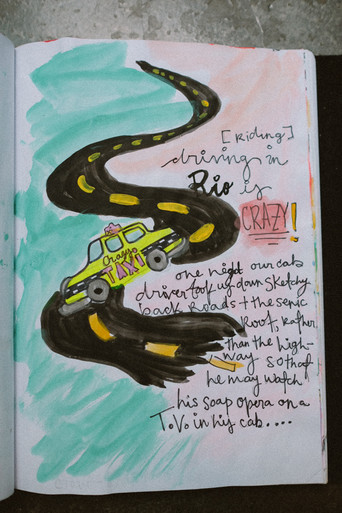 [Riding]
driving in
Rio is
CRAZY!
Crazy
TAXI
one night our cab
driver took us down sketchy
back roads + the scenic
Root, Rather
than the high-
way so that
he may watch
his soap opera on a
T.V. in his cab....